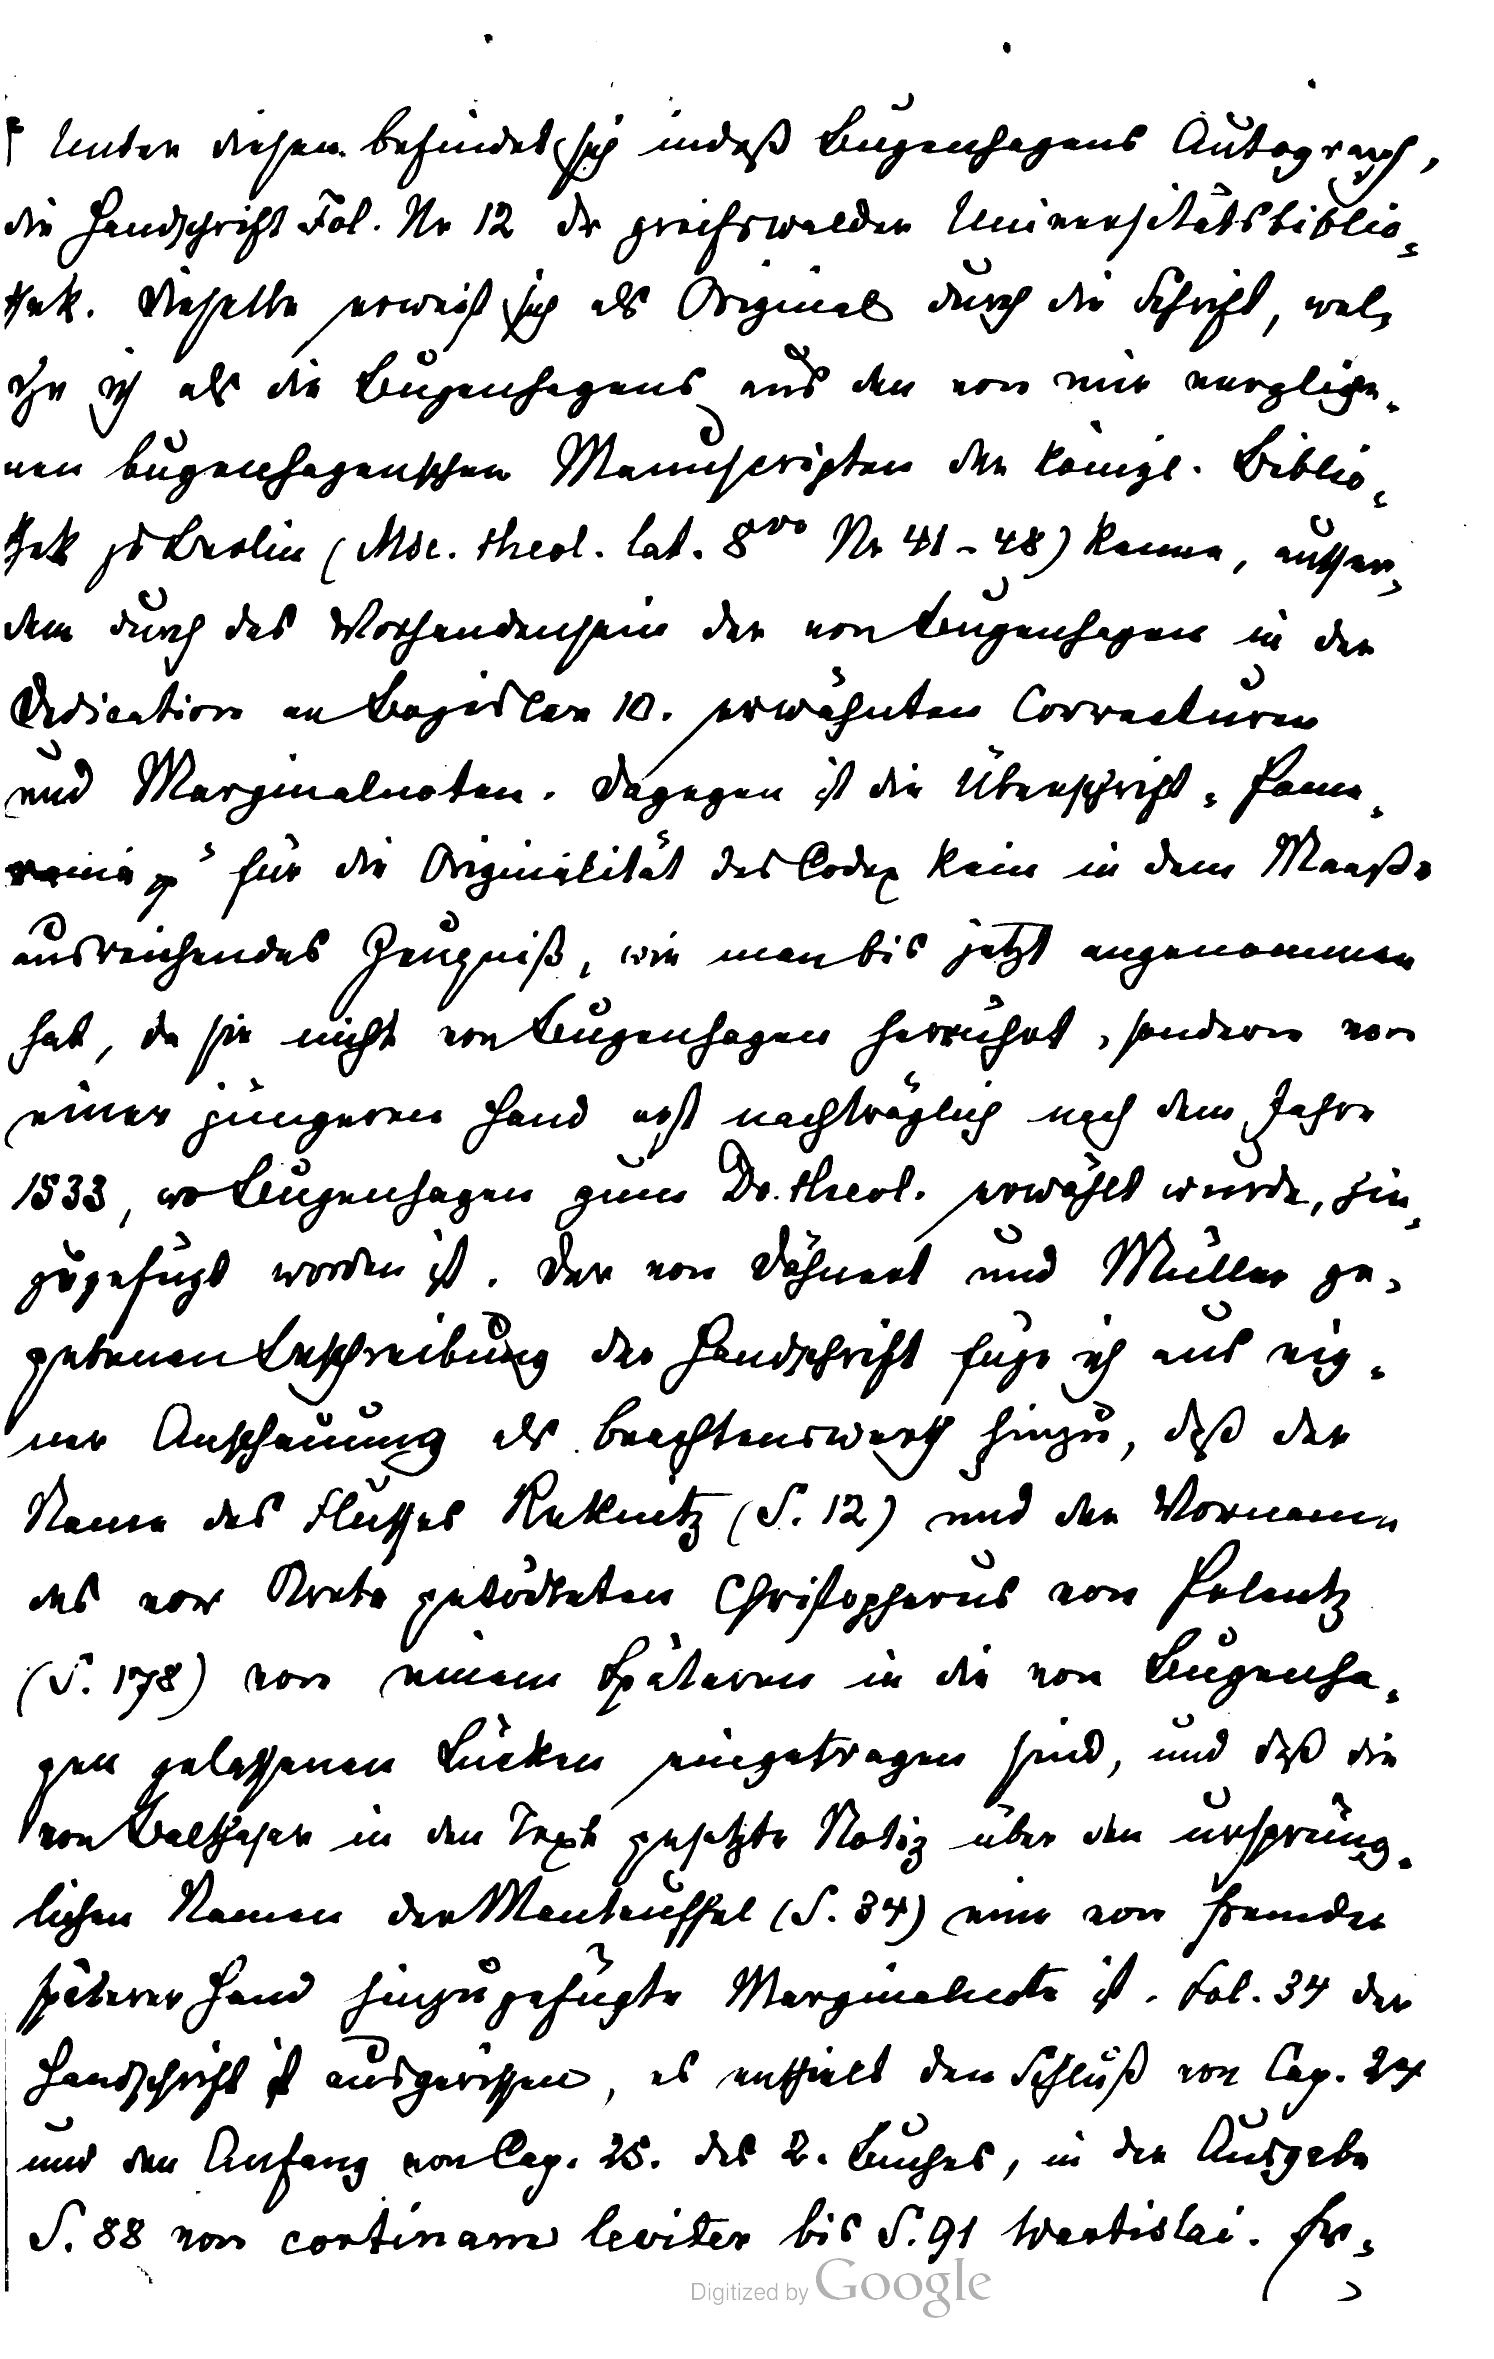 Unter diesen befindet sich indeß Bugenhagens Autograph,
die Handschrift Fol. Nr 12 der greifswalder Universitätsbiblio-
thek. Dieselbe erweist sich als Original durch die Schrift, wel-
che ich als die Bugenhagens aus den von mir vergliche-
nen bugenhagenschen Manuscripten der königl. Biblio-
thek zu Berlin (Msc. theol. lat. 8vo Nr 41-48) kenne, ausser-
dem durch das Vorhandensein der von Bugenhagen in der
Dedication an Bogislav 10. erwähnten Correcturen
und Marginalnoten. Dagegen ist die Überschrift "Pome-
rania" für die Originalität des Codex kein in dem Maaße
ausreichendes Zeugniß, wie man bis jetzt angenommen
hat, da sie nicht von Bugenhagen herrührt, sondern von
einer jüngeren Hand erst nachträglich nach dem Jahre
1533, wo Bugenhagen zum Dr. theol. erwählt wurde, hin-
zugefügt worden ist. Der von Dähnert und Müller ge-
gebenen Beschreibung der Handschrift füge ich aus eig-
ner Anschauung als beachtenswerth hinzu, daß der
Name des Flusses Reknitz (S. 12) und der Vorname
des vor getödteten Christopherus von Polentz
(S. 178) von einem Späteren in die von Bugenha-
gen gelassenen Lücken eingetragen sind, und daß die
von Balthasar in den Text gesetzte Notiz über den ursprüng-
lichen Namen der Manteuffel (S. 34) eine von fremder
späterer Hand hinzugefügte Marginalnote ist. Fol. 34 der
Handschrift ist ausgerissen, es enthielt den Schluß von Cap. 24
und den Anfang von Cap. 25. des 2. Buches, in der Ausgabe
S. 88 von cortinam leviter bis S. 91 Wartislai. Er-
Digitized by Google